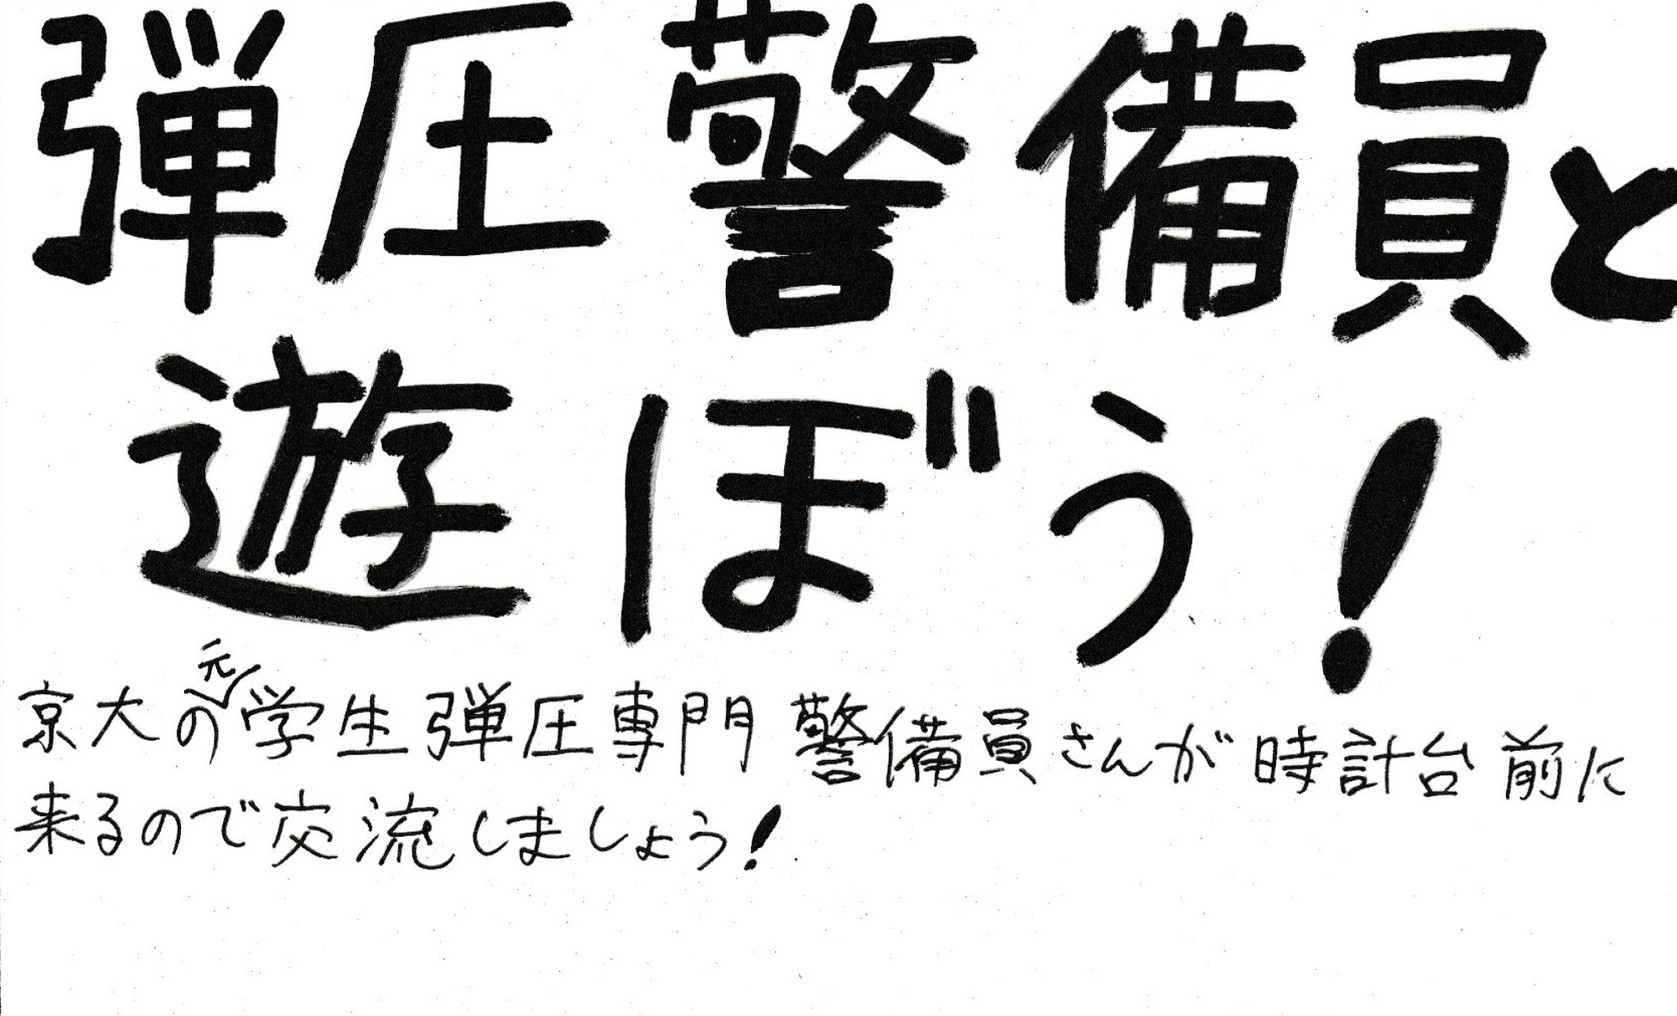 弾圧警備員と
遊ぼう!
京大の元学生弾圧専門警備員さんが時計台前に
来るので交流しましょう!